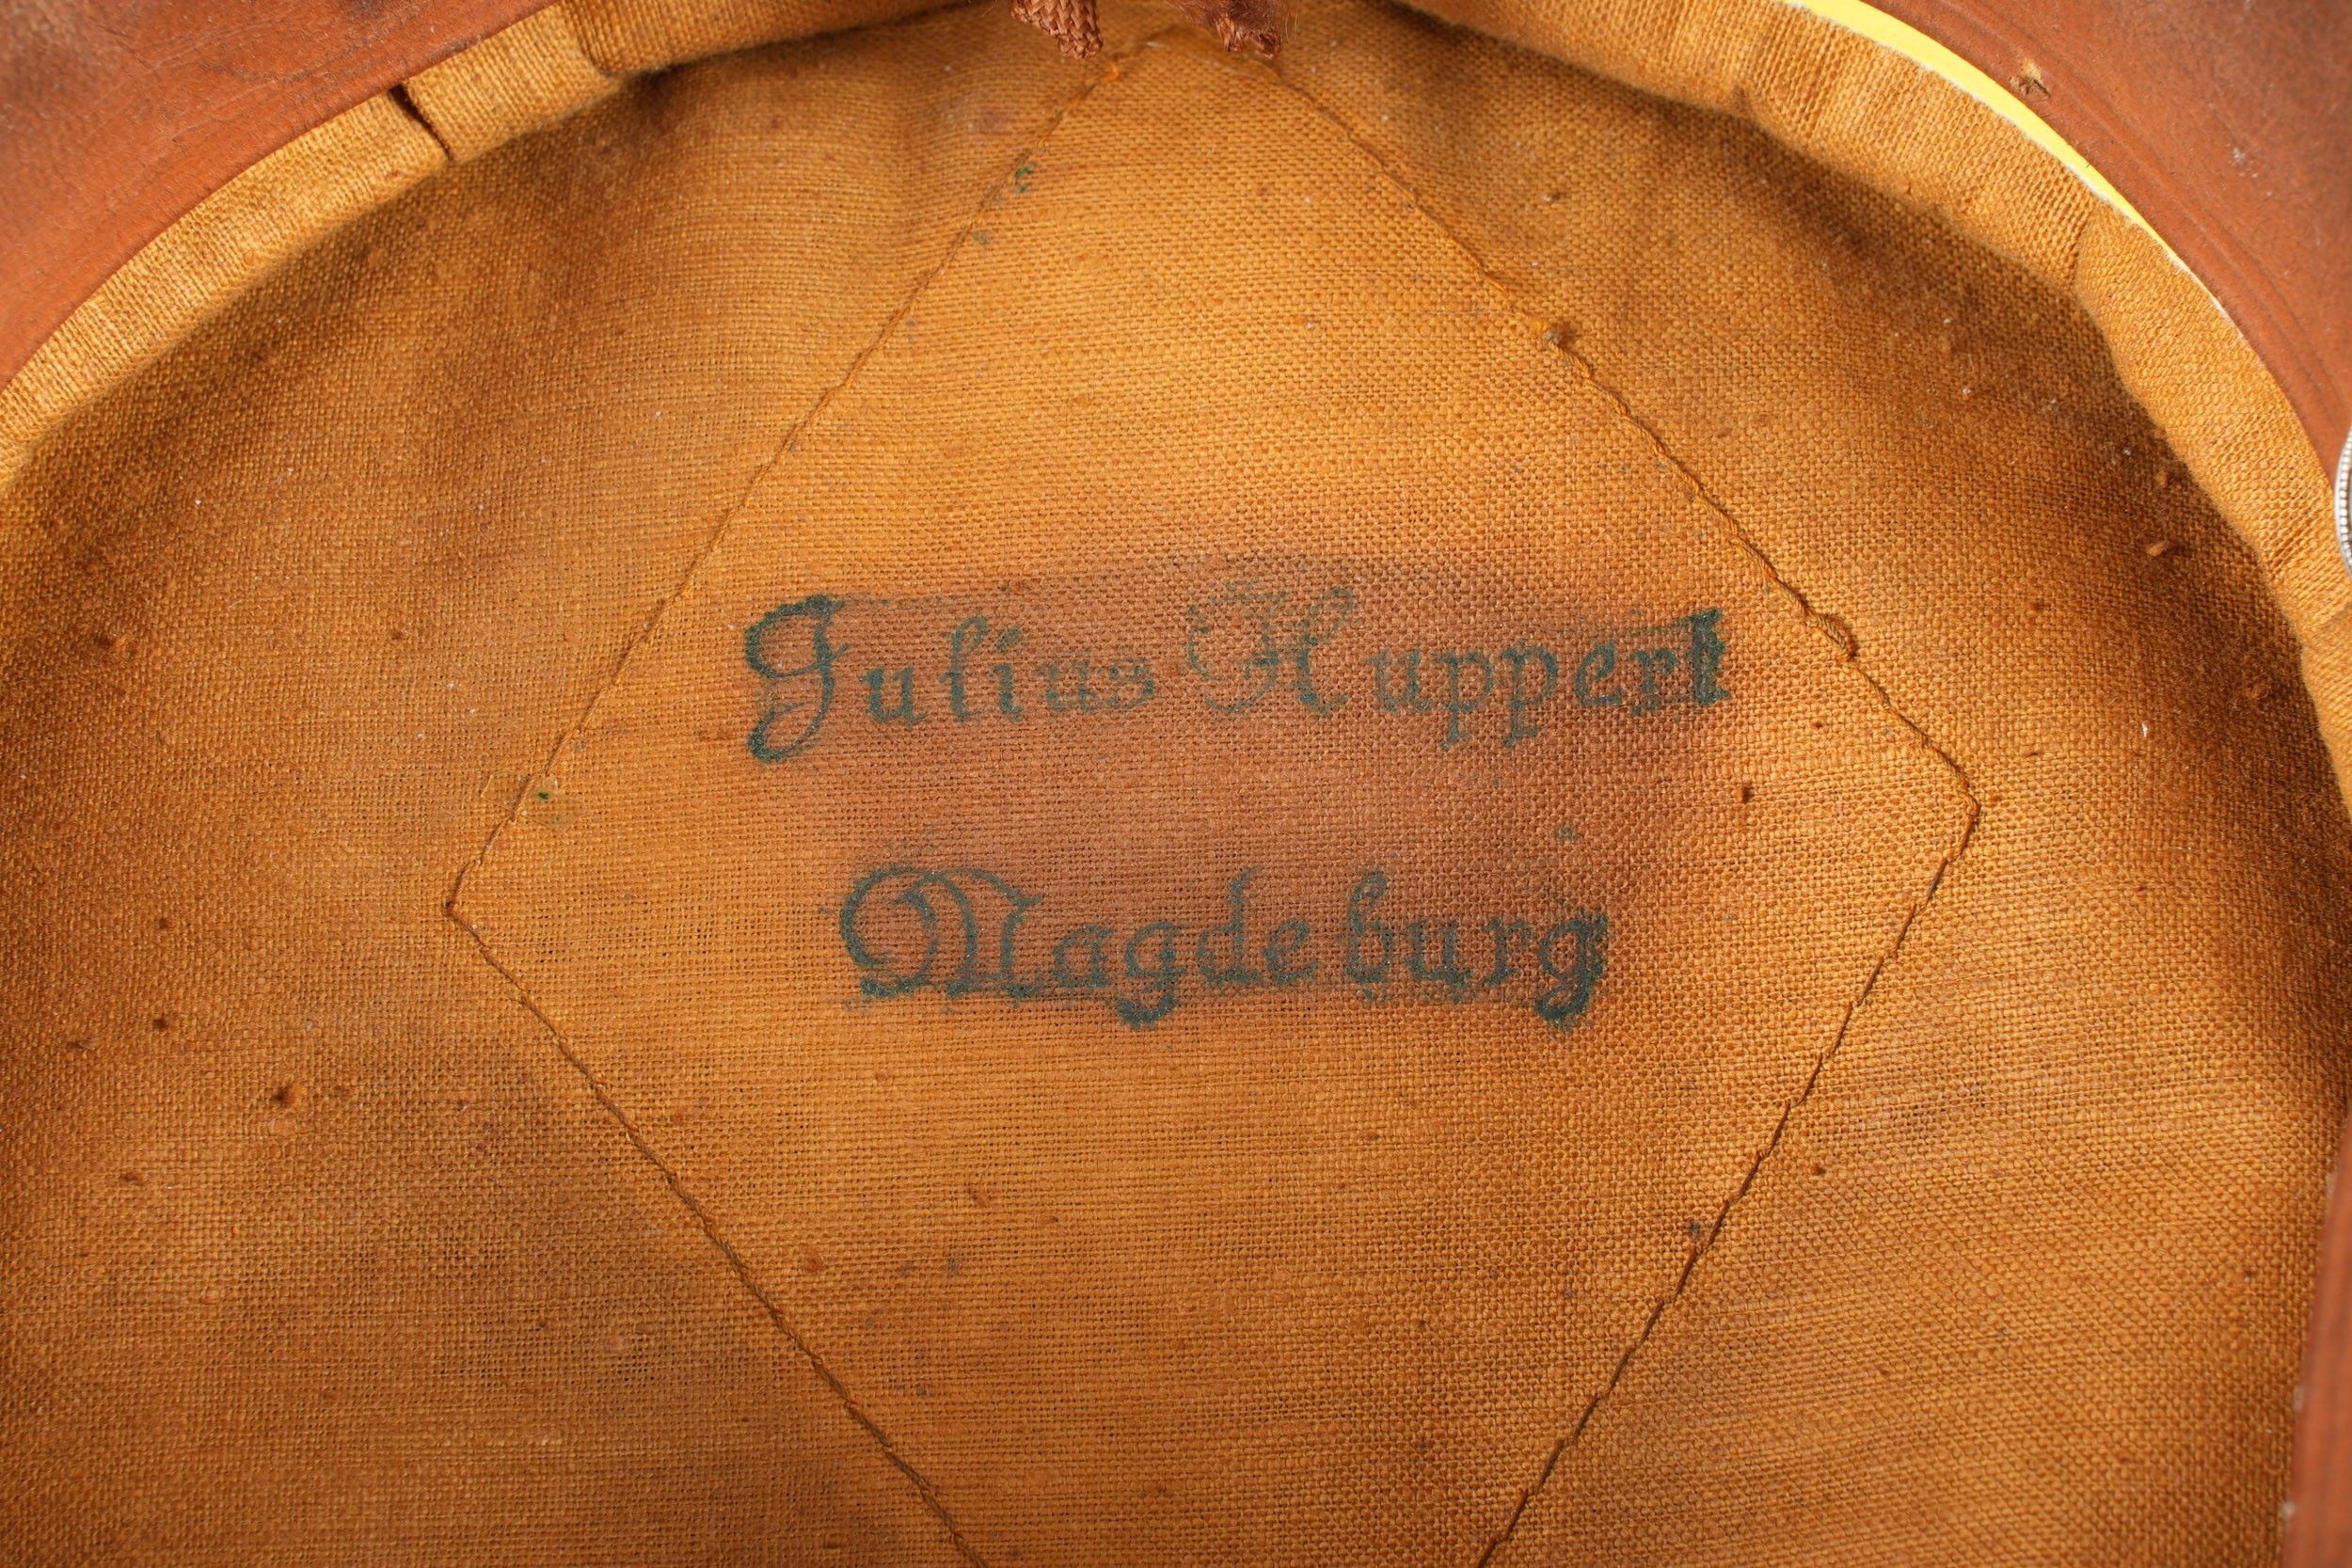 Julius Huppert
Magdeburg